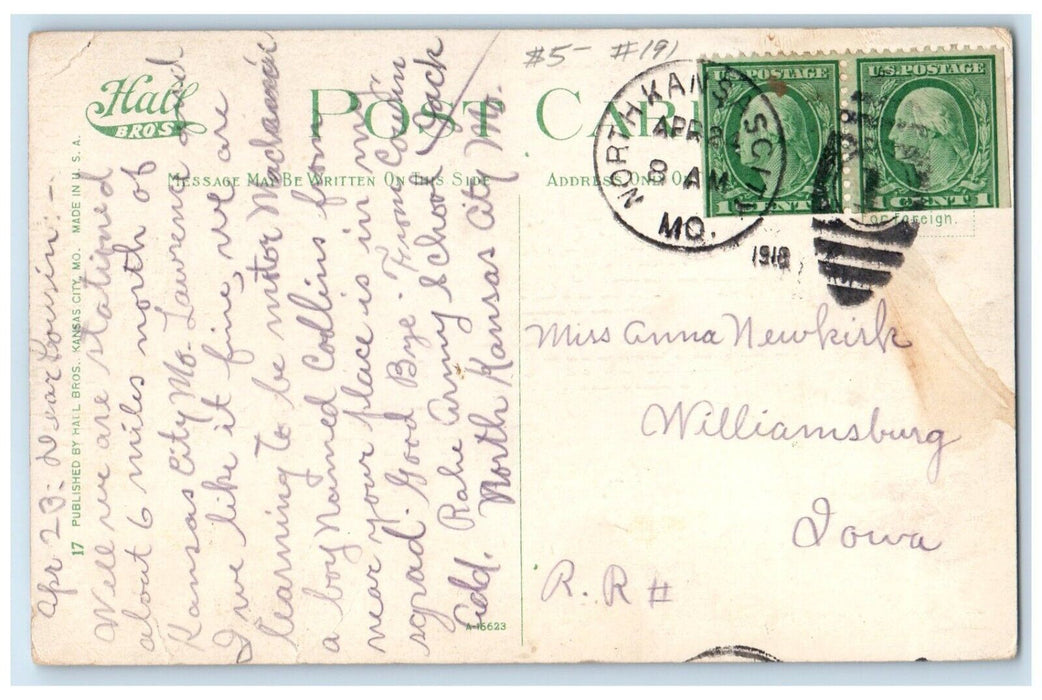 #5- #191
Hall
BROS
POST CARD
MESSAGE MAY BE WRITTEN ON THIS SIDE
ADDRESS ONLY ON
or foreign.
U.S. POSTAGE
1 CENT 1
U.S. POSTAGE
CENT 1
NORTH KANSAS CITY
APR
8 AM
MO.
1918
17 PUBLISHED BY HALL BROS. KANSAS CITY, MO. MADE IN U.S.A.
Apr 23: Dear Cousin:-
Well we are stationed
about 6 miles north of
Kansas City Mo. Lawrence and
I we like it fine, we are
learning to be motor
a boy named Collins from
near your place is in my
sqrad. Good Bye. From Cousin
Add. Rahe Army School Jack
North Kansas City Mo.
A-15623
Miss Anna Newkirk
Williamsburg
Iowa
R.R #